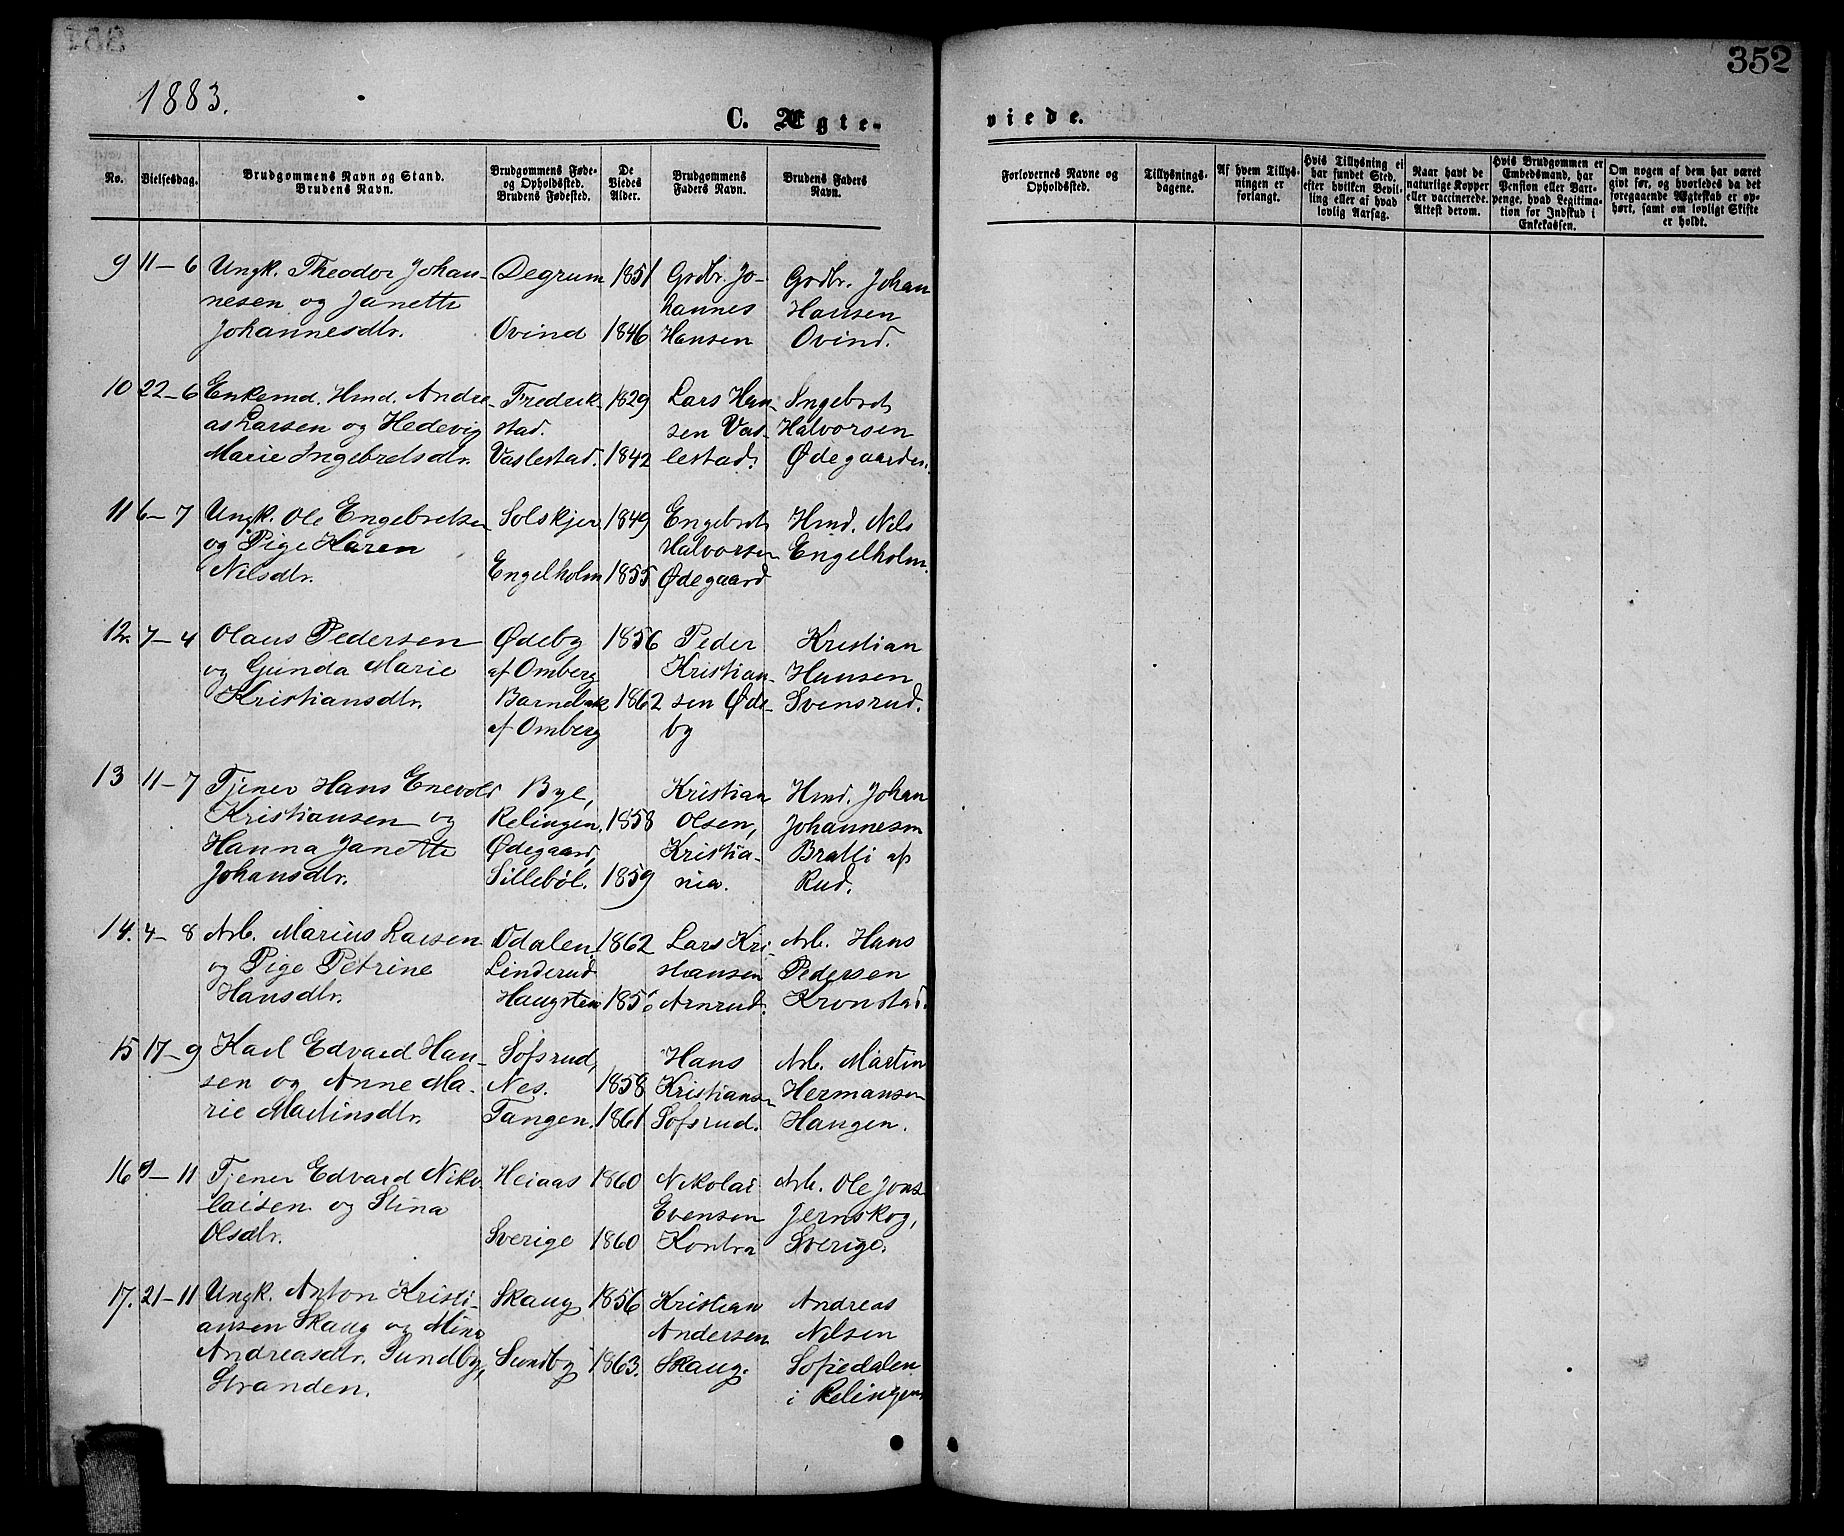 352
1883.
C. Ægte-
viede.
No.
Vielsesdag.
Brudgommens Navn og Stand.
Brudens Navn.
Brudgommens Føde-
og Opholdssted.
Brudens Fødested.
De
Viedes
Alder.
Brudgommens
Faders Navn.
Brudens Faders
Navn.
Forlovernes Navne og
Opholdssted.
Tillysnings-
dagene.
Af hvem Tillys-
ningen er
forlangt.
Hvis Tillysning ei
har fundet Sted,
efter hvilken Bevil-
ling eller af hvad
lovlig Aarsag.
Naar havt de
naturlige Kopper
eller vaccinerede.
Attest derom.
Hvis Brudgommen er
Embedsmand, har
Pension eller Vart-
penge, hvad Legitima-
tion for Indskud i
Enkekassen.
Om nogen af dem har været
givt før, og hvorledes da det
foregaaende Ægteskab er op-
hørt, samt om lovligt Skifte
er holdt.
9 11-6 Ungk. Theodor Johan- Degrum 1851 Gdbr. Jo- Grdbr. Johan
nesen og Janette hannes Hansen
Johannesdtr. Ovind 1846 Hansen Ovind.
10 22-6 Enkemd. Hmd. Andre- Fredrik- 1829 Lars Han- Ingebret
as Larsen og Hedevig stad. sen Vas- Halvorsen
Marie Ingebretsdtr. Vaslestad. 1842 lestad. Ødegaarden.
11 6-7 Ungk. Ole Engebretsen Solskjer 1849 Engebret Hmd. Nils
og Pige Karen Halvorsen Engelholm.
Nilsdtr. Engelholm 1855 Ødegaard
12. 7-4 Olaus Pedersen Ødeby 1856 Peder Kristian
og Gunda Marie af Omberg Kristian- Hansen
Kristiansdtr. Barnebak 1862 sen Øde- Svensrud.
af Omberg by
13 11-7 Tjener Hans Enevold Bye, Kristian Hmd. Johan
Kristiansen og Relingen, 1858 Olsen, Johannesen
Hanna Janette Ødegaard, Kristia- Bratli af
Johansdtr. Sillebøl. 1859 nia. Rud.
14. 4-8 Arb. Marius Larsen Odalen 1862 Lars Kri- Arb. Hans
og Pige Petrine Linderud stiansen Pedersen
Hansdtr. Haugsten 1856 Arnrud. Kronstad.
15 17-9 Karl Edvard Han- Sofsrud, Hans Arb. Martin
sen og Anne Ma- Nes. 1858 Kristiansen Hermansen
rie Martinsdtr. Tangen. 1861 Sofsrud. Haugen.
16 9-11 Tjener Edvard Niko- Heiaas 1860 Nikolai Arb. Ole Jons
laisen og Stina Evensen Jernskog,
Olsdtr. Sverige 1860 Kontra Sverige.
17. 21-11 Ungk. Anton Kristi- Skaug 1856 Kristian Andreas
ansen Skaug og Mina Andersen Nilsen
Andreasdtr. Sundby, Sundby 1863. Skaug. Sofiedalen
Stranden. i Relingen